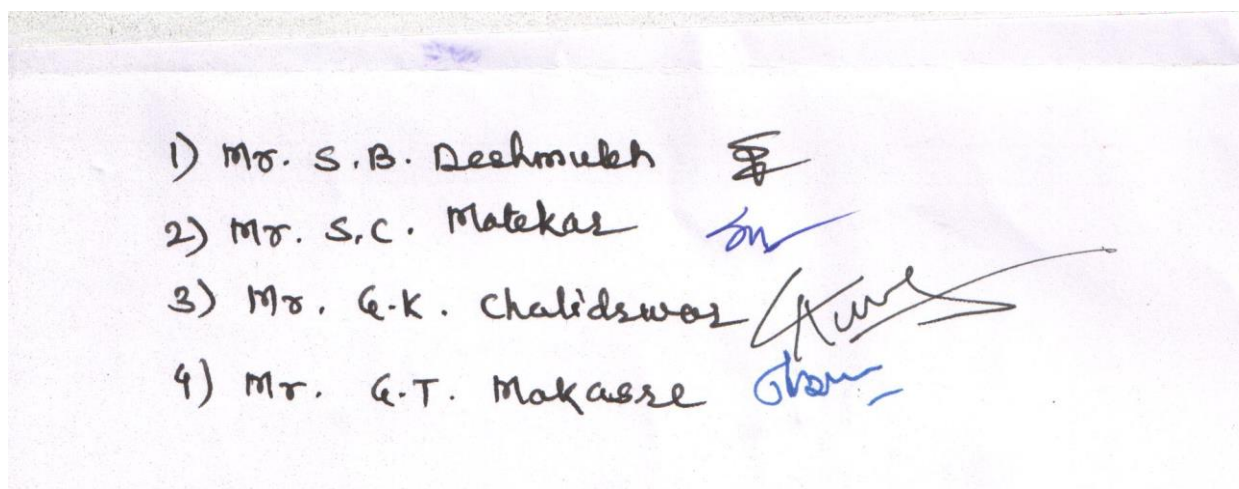 1) Mr. S.B. Deshmukh
2) Mr. S.C. Matekar
3) Mr. G.K. Chalidswar
4) Mr. G.T. Makasre